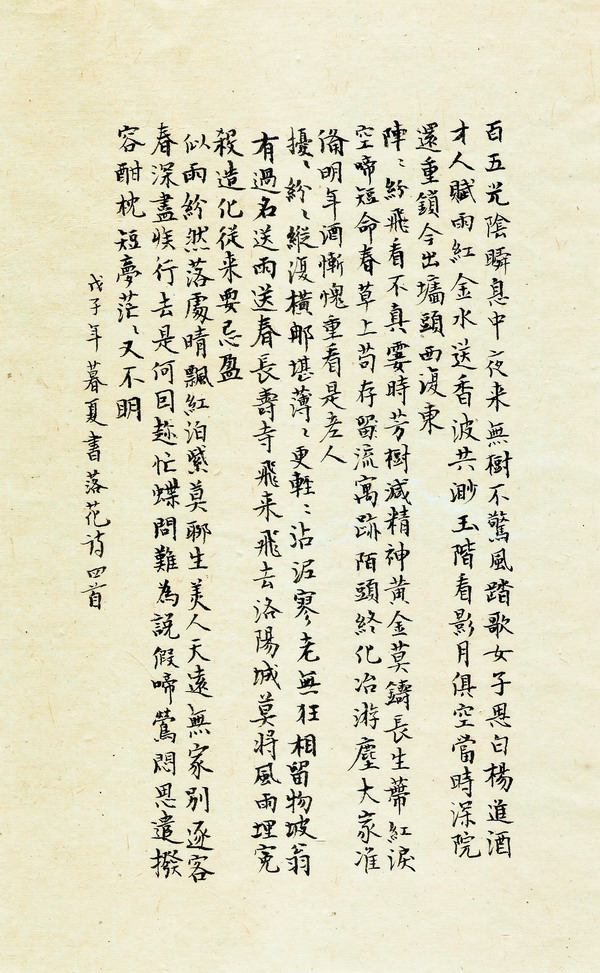 百五光陰瞬息中夜来無樹不驚風踏歌女子思白楊進酒
才人賦雨紅金水送香波共渺玉階看影月俱空當時深院
還重鎖今出墻頭西復東
陣〻紛飛看不真霎時芳樹減精神黃金莫鑄長生蒂紅淚
空啼短命春草上苟存留寓跡陌頭終化冶游塵大家准
備明年酒慚愧重看是老人
擾〻紛〻縱復橫那堪薄〻更輕〻沾泥寥老無狂相留物坡翁
有過名送雨送春長壽寺飛来飛去洛陽城莫將風雨埋冤
殺造化従来要忌盈
似雨紛然落處晴飄紅泊紫莫聊生美人天遠無家別逐客
春深盡族行去是何因趂忙蝶問難為說假啼鶯悶思遣撥
容酣枕短夢茫〻又不明
戊子年暮夏書落花詩四首